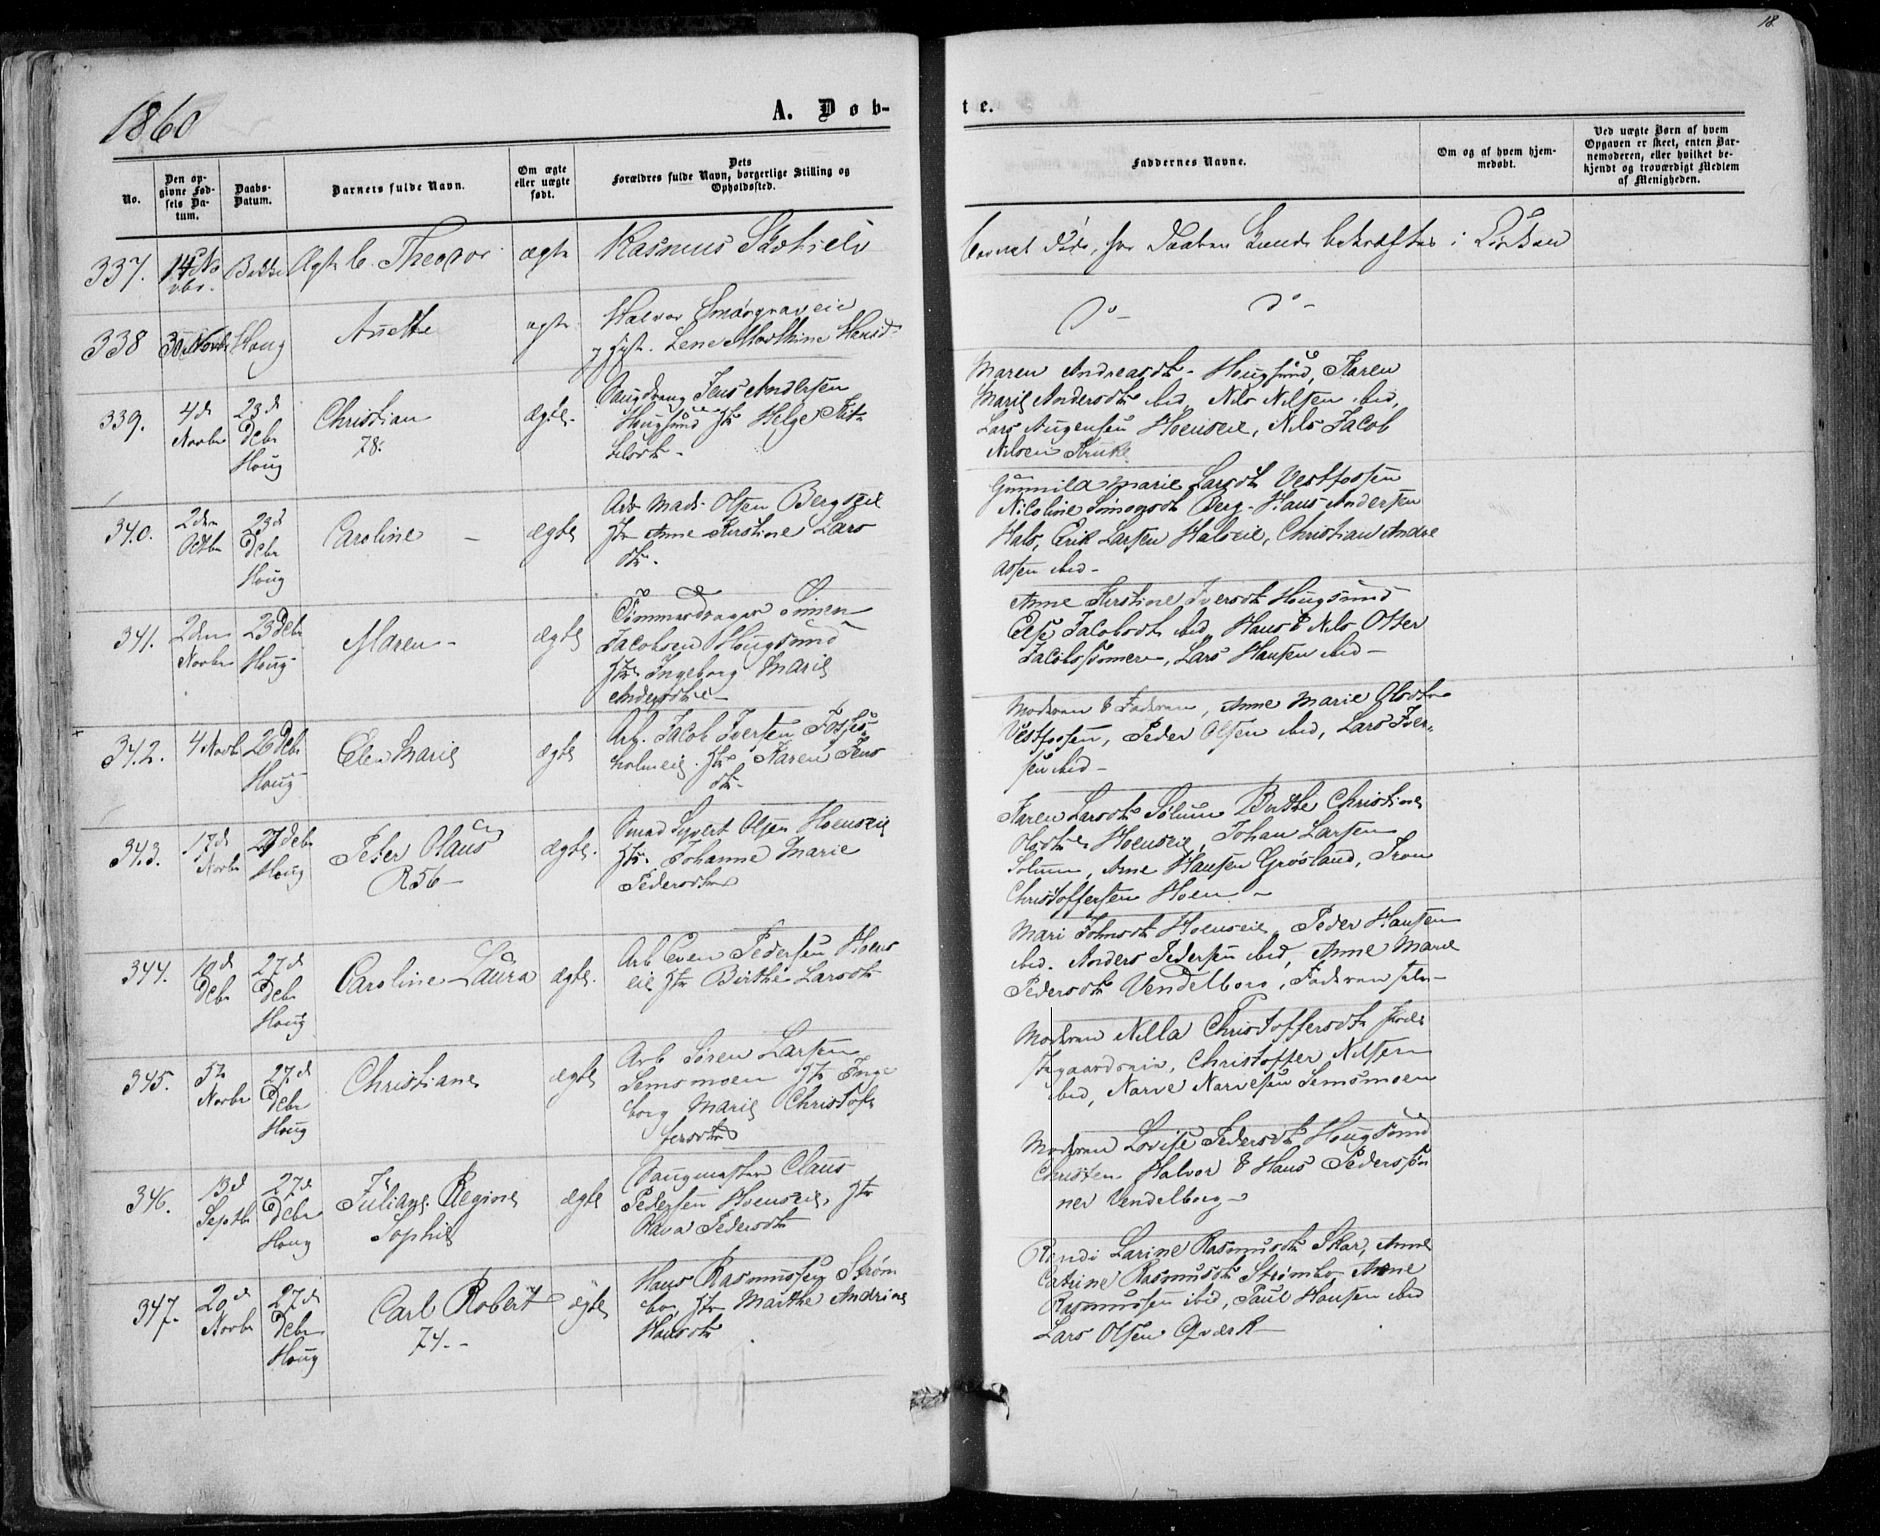 18.
1860
A. Døb-
te.
No.
Den op-
givne Fød-
sels Da-
tum.
Daabs-
Datum.
Barnets fulde Navn.
Om ægte
eller uægte
født.
Dets
Forældres fulde Navn, borgerlige Stilling og
Opholdssted.
Faddernes Navne.
Om og af hvem hjem-
medøbt.
Ved uægte Børn af hvem
Opgaven er sket, enten Bar-
nemoderen, eller hvilket be-
kjendt og troværdigt Medlem
af Menigheden.
337.
Theodor
ægte
Rasmus
Barnet døde, før Daaben kunde bekræftes i Kirken
338
30 Novbr
Houg
Anette
ægte
Halvor Smørgraveie
Lene Marthine Hansd
Do - do -
339.
4d
Novbr
23d
Debr
Houg
Christian
78.
ægte.
Jens Andersen
Hougsund Htr Helge
Maren Andreasdtr Hougsund, Karen
Marie Andersdtr ibid, Nils Nilsen ibid,
Lars Hoenseie, Nils Jacob
Nilsen
340.
2den
Octbr
23d
Debr
Houg
Caroline -
ægte
Arb Mads Olsen Bergseie
Htr Anne Kirstine Lars
dtr.
Gunnild Marie Larsdtr Vestfossen
Nicoline Simonsdtr Berg - Hans Andersen
Hals, Erik Larsen Halseie, Christian Andre
assen ibid -
341.
2den
Novbr
23 Debr
Houg
Maren -
ægte
Tømmerdrager Simen
Jacobsen Hougsund
Htr Ingeborg Marie
Andersdtr
Anne Kirstine Iversdtr Hougsund
Else Jacobsdtr ibid, Hans & Nils Otter
Jacobssønner, Lars Hansen ibid -
342.
4 Novbr
26 Debr
Houg
Elen Marie
ægte
Arb. Jacob Iversen Fosses
holmeie. Htr Karen Jens
dtr.
Moderen & Faderen, Anne Marie Olsdtr
Vestfossen, Peder Olsen ibid, Lars Iver-
sen ibid -
343.
17d
Novbr
27 Debr
Houg
Peter Olaus
R56 -
ægte.
Smed Syvert Olsen Hoenseie
Htr. Johanne Marie
Pedersdtr
Karen Larsdtr Solum Berthe Christine
Olsdtr Hoenseie, Johan Larsen
Solum, Arne Hansen Grøsland, Tron
Christoffersen Hoen -
344.
10d
Debr
27d
Debr
Houg
Caroline Laura
ægte.
Arb Even Pedersen Hoens
eie Htr Berthe Larsdtr
Mari Johnsdtr Hoenseie, Peder Hansen
ibid. Anders Pedersen ibid, Anne Marie
Pedersdtr Vendelborg, Faderen selv -
345.
5te
Novbr
27d
Debr
Houg
Christiane
ægte
Arb Søren Larsen
Semsmoen Htr Inge
borg Marie Christof
fersdtr
Moderen Nilla Christoffersdtr
Christoffer Nilsen
ibid, Narve Narvesen Semsmoen
346.
13d
Septbr
27d
Debr
Houg
Juliane Regine
Sophie
ægte
Saugmester Claus
Pedersen Hoenseie, Htr
Pedersdtr
Moderen Lovise Pedersdtr Hougsund
Christen, Halvor & Hans Pederssøn
ner Vendelborg -
347.
20d
Novbr
27d
Debr
Houg
Carl Robert
74. -
ægte
Hans Rasmussen Strøm
bo Htr Marthe Andrine
Hansdtr
Larine Rasmusdtr Skar, Anne
Catrine Rasmusdtr Strømbo Arne
Rasmussen ibid, Paul Hansen ibid
Lars Olsen